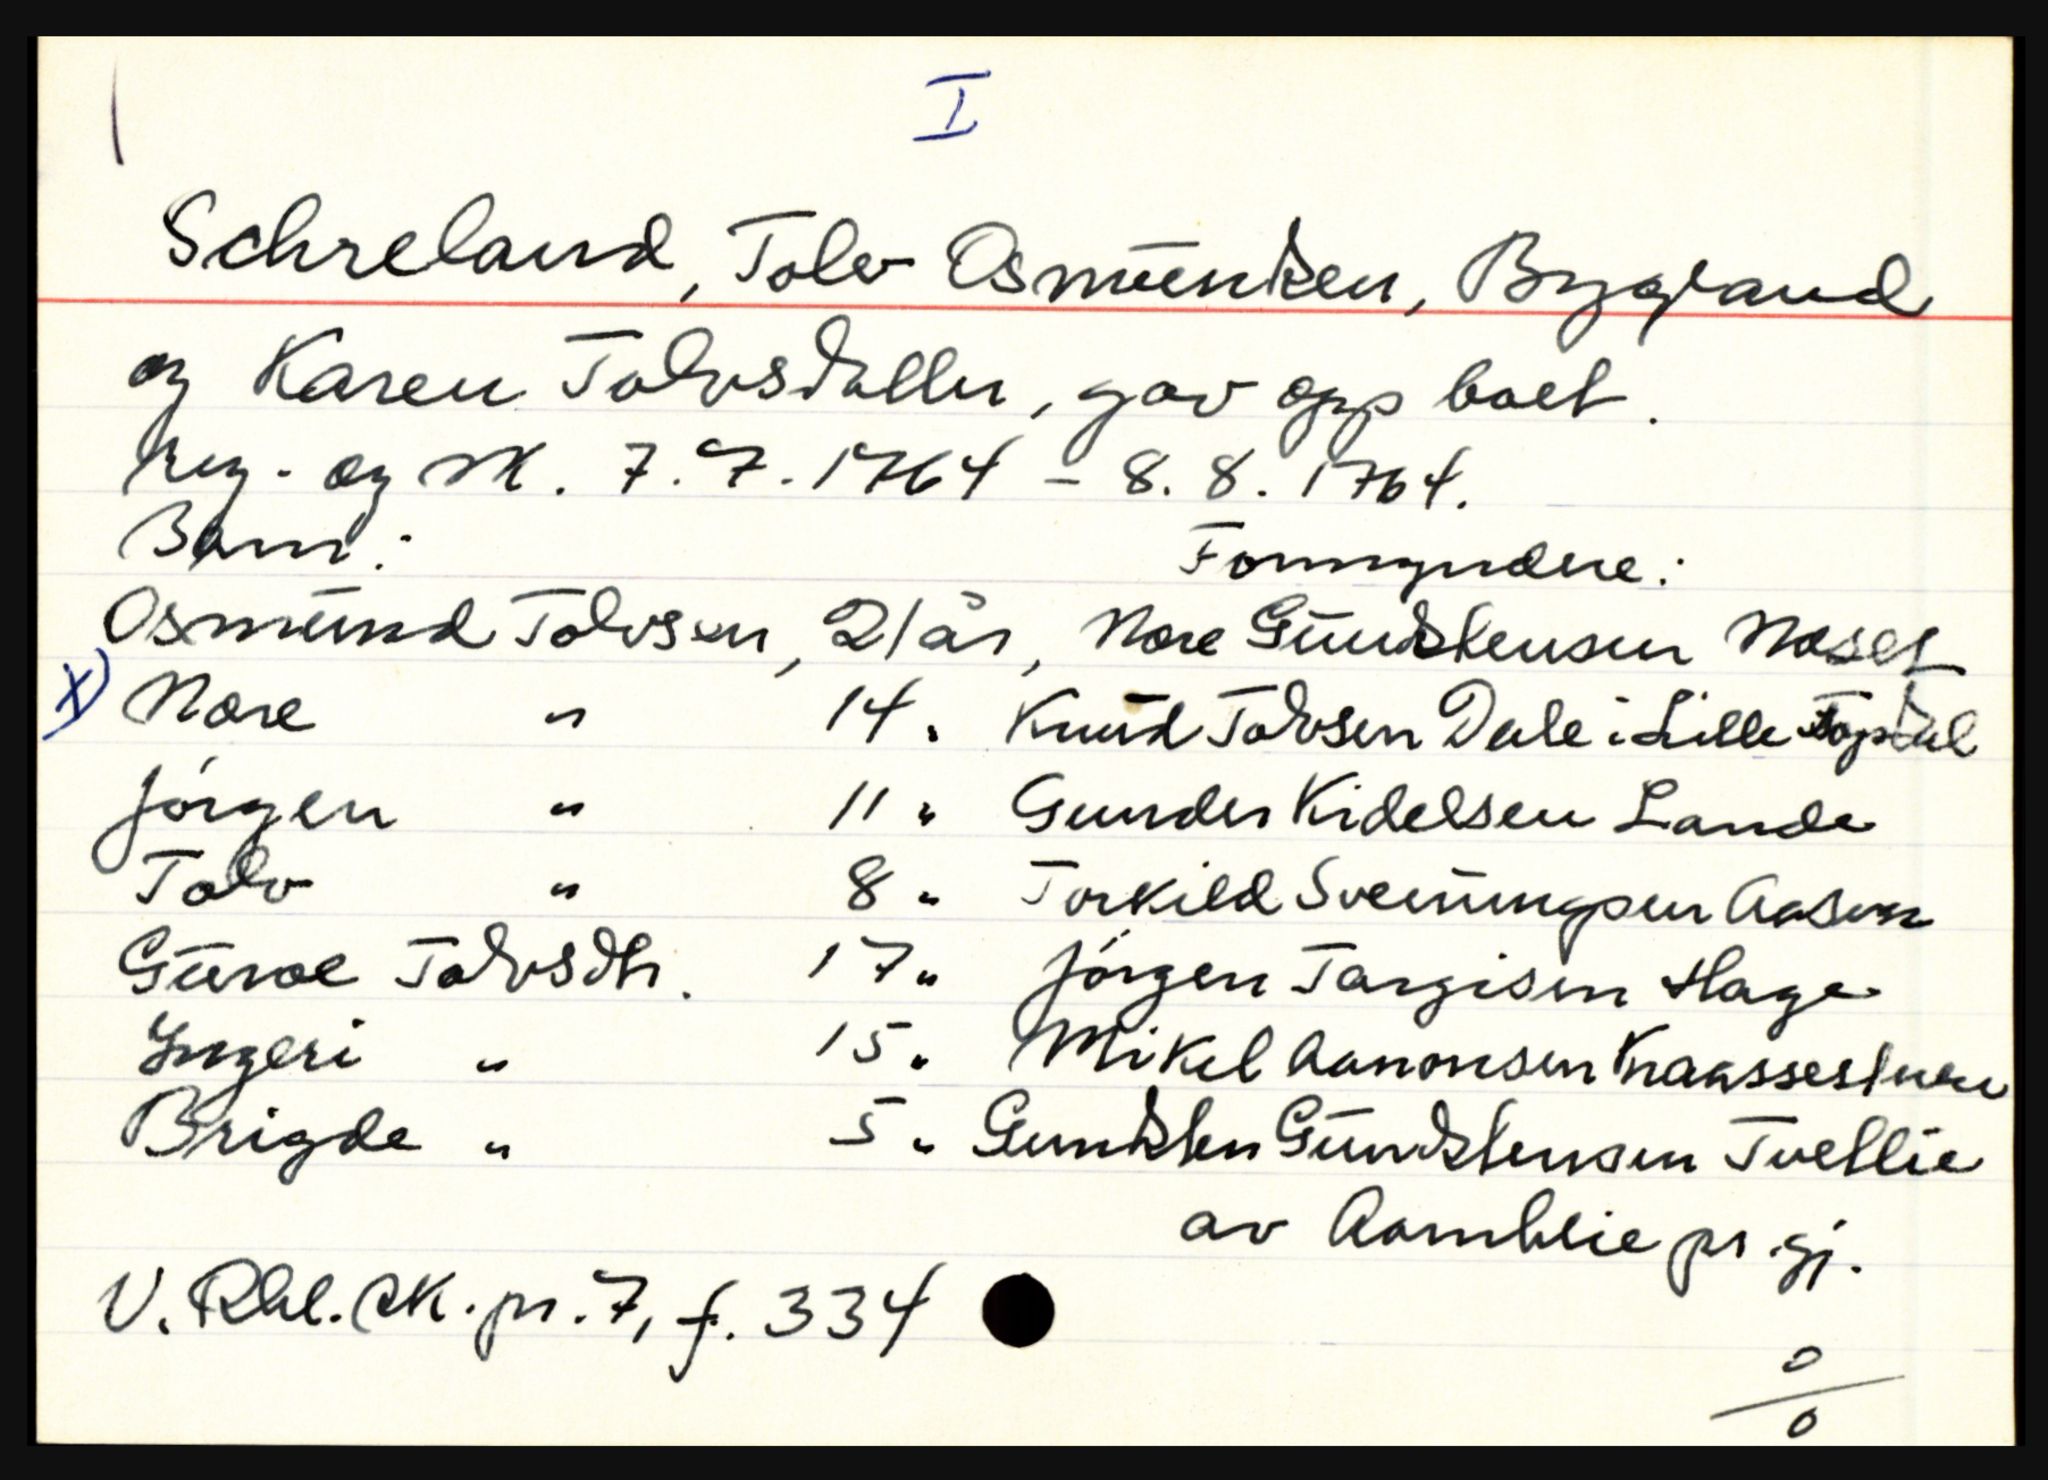 I
Schreland, Tolv Osmundsen, Bygland
og Karen Tolvsdatter, gav opp boet.
Reg. og sk. 7.7.1764 - 8.8.1764.
Barn: Formyndere:
Osmund Tolvsen, 21 år, Nore Gundstensen Noset
x) Nore " 14 " Knud Tolvsen Dale i Lille Topdal
Jörgen " 11 " Gunder Kidelsen Lande
Tolv " 8 " Torkild Sveinungsen Aasen
Guroe Tolvsdtr. 17 " Jörgen Targisen Hage
Ingeri " 15 " Mikel Aanonsen
Brigde " 5 " Gundsten Gundstensen Tvetlie
av Aamblie pr.gj.
V. Rbl. sk. pr. 7, f. 334
0
0